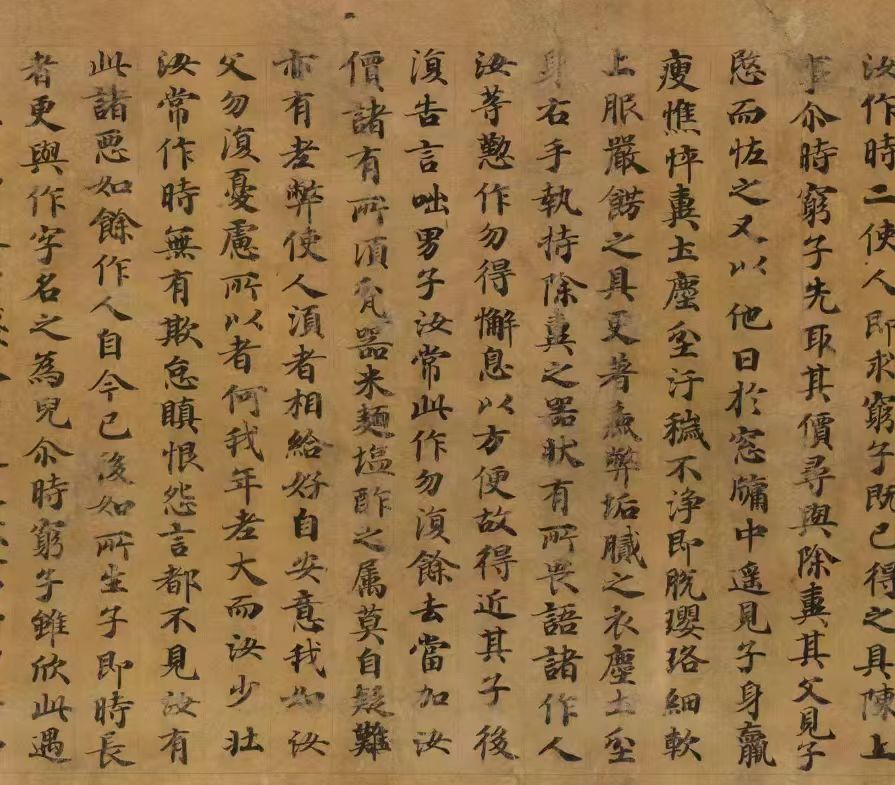 汝作時二使人即求窮子既已得之具陳上
事尒時窮子先取其價尋與除糞其父見子
愍而恠之又以他日於窓牖中遥見子身羸
瘦憔悴糞土塵坌汙穢不淨即脱瓔珞細軟
上服嚴餝之具更著麁弊垢膩之衣塵土坌
身右手執持除糞之器状有所畏語諸作人
汝等懃作勿得懈息以方便故得近其子後
復告言咄男子汝常此作勿復餘去當加汝
價諸有所須瓫器米麵塩酢之属莫自疑難
亦有老弊使人須者相給好自安意我如汝
父勿復憂慮所以者何我年老大而汝少壮
汝常作時無有欺怠瞋恨怨言都不見汝有
此諸悪如餘作人自今已後如所生子即時長
者更與作字名之為兒尒時窮子雖欣此遇